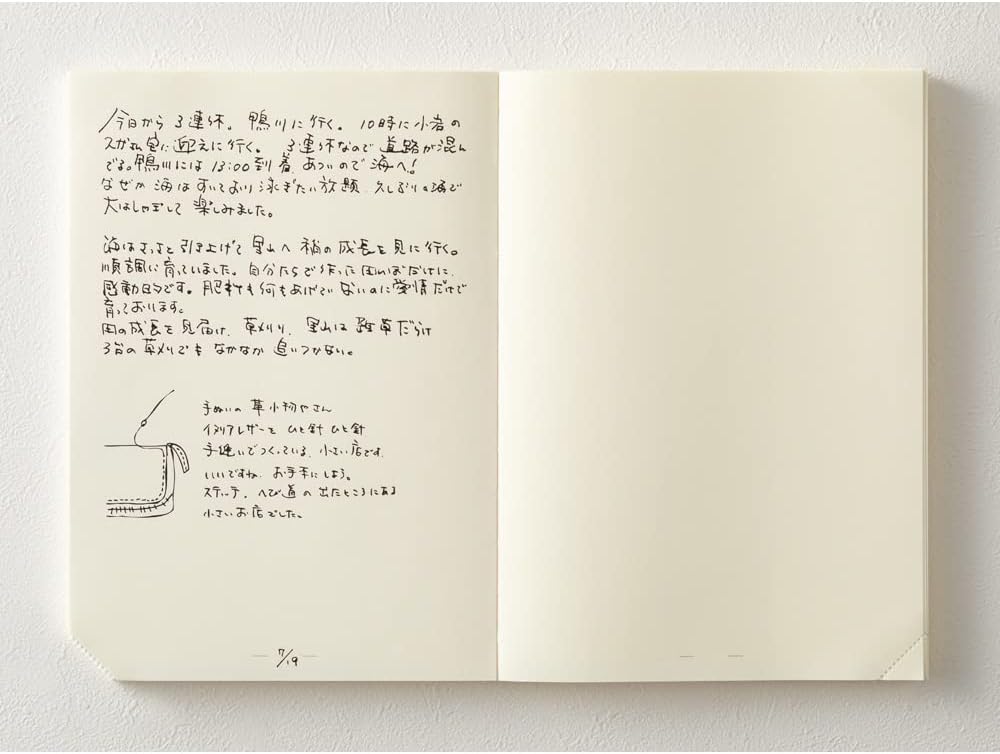 今日から3連休。鴨川に行く。10時に小岩の
スガさん宅に迎えに行く。3連休なので道路が混ん
でる。鴨川には13:00到着。あついので海へ!
なぜか海はすいており泳ぎたい放題。久しぶりの海で
大はしゃぎして楽しみました。
海はさっさと引き上げて里山へ 稲の成長を見に行く。
順調に育っていました。自分たちで作った田んぼだけに、
感動的です。肥料も何もあげていないのに愛情だけで
育っております。
田の成長を見届け、草刈り、里山は雑草だらけ
の草刈りでもなかなか追いつかない。
手ぬいの革小物やさん
イタリアレザーを ひと針ひと針
手縫いでつくっている、小さい店です。
いいですね。お手本にしよう。
ステッチ。へび道の出たところにある
小さいお店でした。
7/19